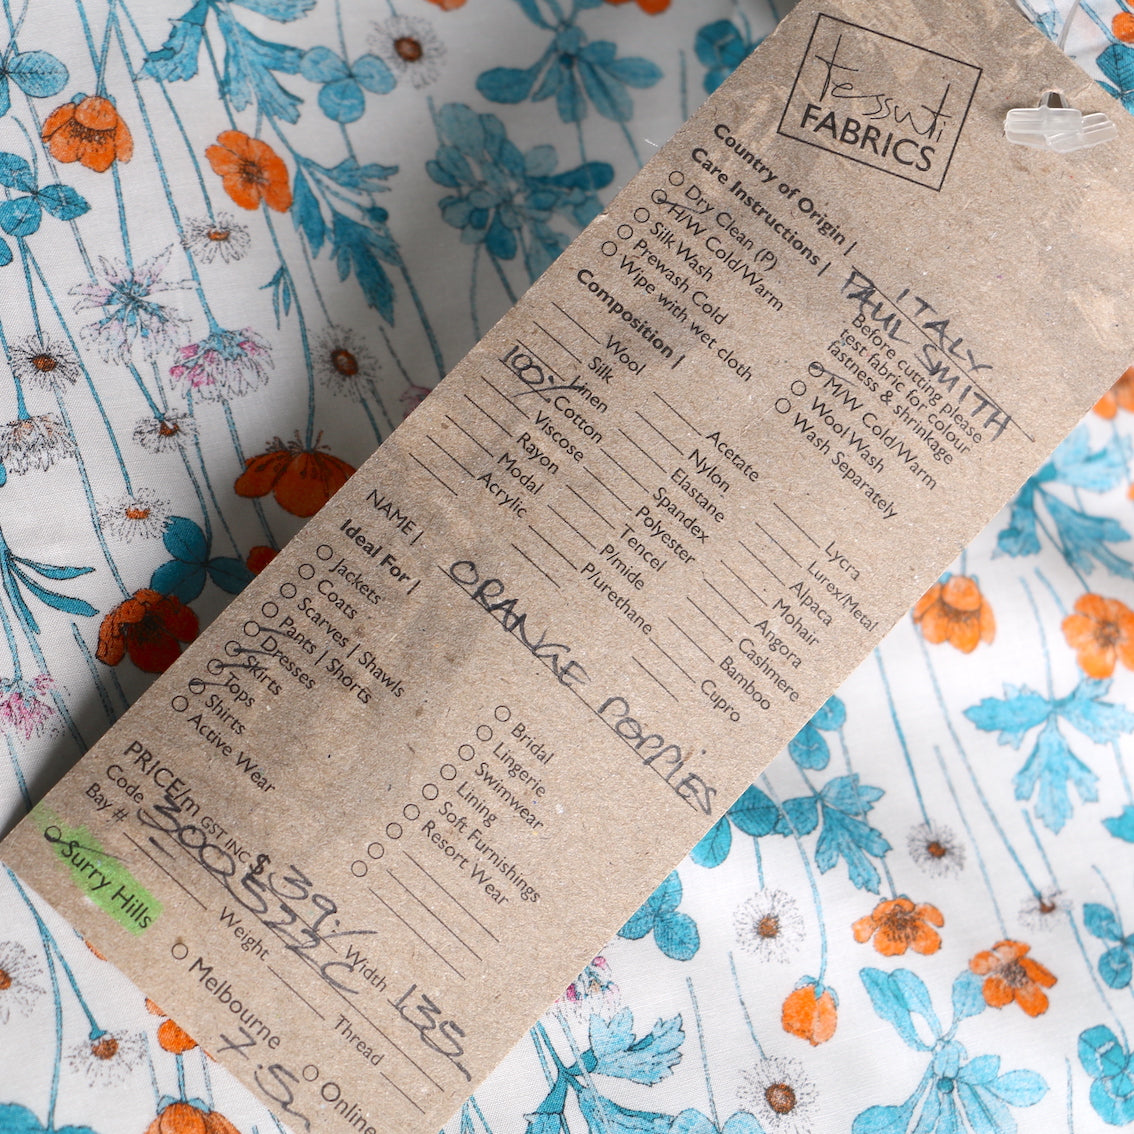 tessuti
FABRICS
Country of Origin | ITALY
Care Instructions | PAUL SMITH
Dry Clean (P)
H/W Cold/Warm
Silk Wash
Prewash Cold
Wipe with wet cloth
Before cutting please
test fabric for colour
fastness & shrinkage
M/W Cold/Warm
Wool Wash
Wash Separately
Composition |
Wool
Silk
Linen
100% Cotton
Viscose
Rayon
Modal
Acrylic
Acetate
Nylon
Elastane
Spandex
Polyester
Tencel
P/mide
P/urethane
Lycra
Lurex/Metal
Alpaca
Mohair
Angora
Cashmere
Bamboo
Cupro
NAME | ORANGE POPPIES
Ideal For |
Jackets
Coats
Scarves | Shawls
Pants | Shorts
Dresses
Skirts
Tops
Shirts
Active Wear
Bridal
Lingerie
Swimwear
Lining
Soft Furnishings
Resort Wear
PRICE/m GST INC $ 39/ Width 135
Code 300322C
Bay # Weight Thread
Surry Hills Melbourne Online